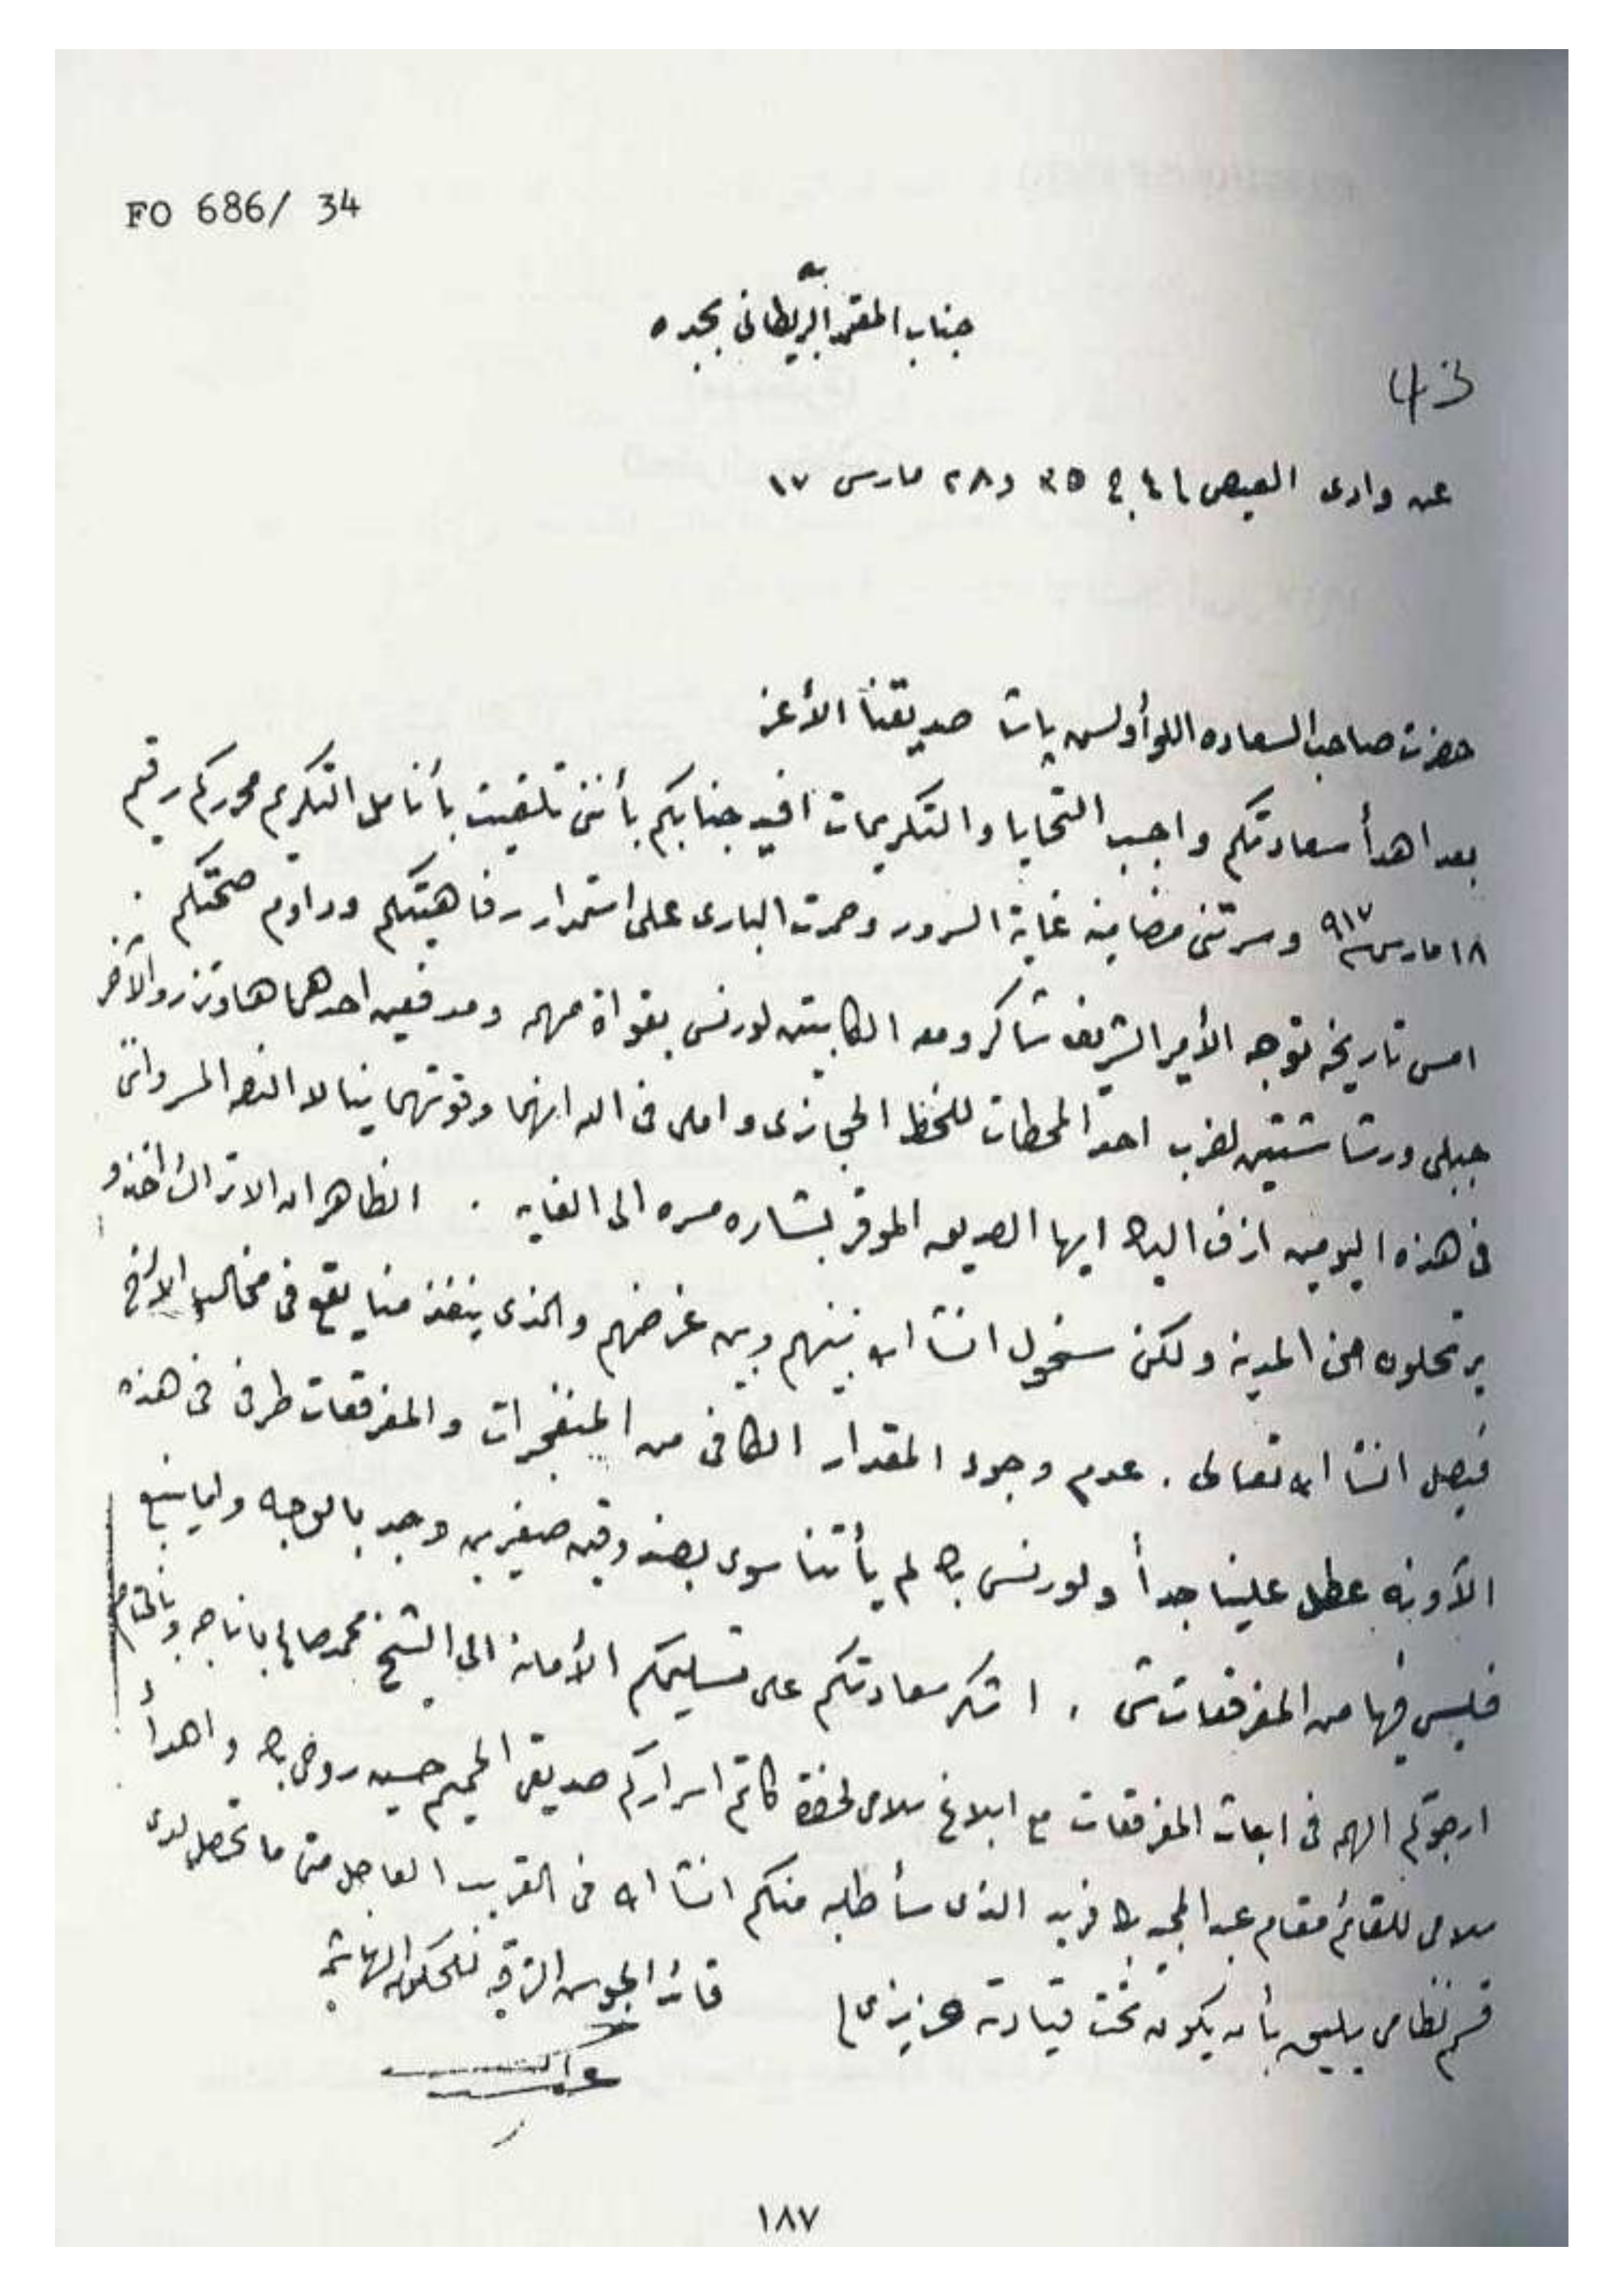 FO 686/ 34
جناب المعتمد البريطاني بجده
43
عن وادى العيص ٣٥ و ٢٨ مارس ١٧
حضرت صاحب السعاده اللوأ ولسن پاشا صديقنا الأعز
بعد اهدأ سعادتكم واجب التحايا والتكريمات افيد جنابكم بأننى تلقيت بأنامل التكريم محرركم رقيم
١٨ مارس ٩١٧ وسرتنى مضامينه غاية السرور وحمدت البارى على استمرار رفاهيتكم ودوام صحتكم .
امس تاريخه توجه الأمير الشريف شاكر ومعه الكابيتن لورنس بقواة مهمه ومدفعين احدهما هاوتزر والآخر
جبلى ورشاشتين لضرب احد المحطات للخط الحجازى واملى فى الله انهما وقوتهما ينالا النصر المر
فى هذه اليومين ازف اليك ايها الصديق الموقر بشاره مسره الى الغايه . الظاهر ان الاتراك اخذو
يرتحلون من المدينه ولكن سنحول انشا الله بينهم وبين غرضهم والذى ينفذ منا يقع فى مخالب الاخ
فيصل انشا الله تعالى . عدم وجود المقدار الكافى من المنفجرات والمفرقعات طرفى فى هذه
الآونه عطل علينا جداً ولورنس بك لم يأتنا سوى بصندوقين صغيرين وجد بالوجه واما ينبع
فليس فيها من المفرقعات شى . اشكر سعادتكم على تسليمكم الأمانه الى الشيخ محمد صالح باناجه وبالختام
ارجوكم الهمه فى ابعاث المفرقعات مع ابلاغ سلامى لحضرة كاتم اسراركم صديقى الحميم حسين روحى بك واهدأ
سلامى للقائم مقام عبد المجيد بك فريد الذى سأطلبه منكم انشا الله فى القريب العاجل متى ما تحصل لدى
قسم نظامى يليق بأن يكون تحت قيادته عزيزى
قائد الجيوش الشرقيه للحكومه الهاشميه
عبدالله
١٨٧